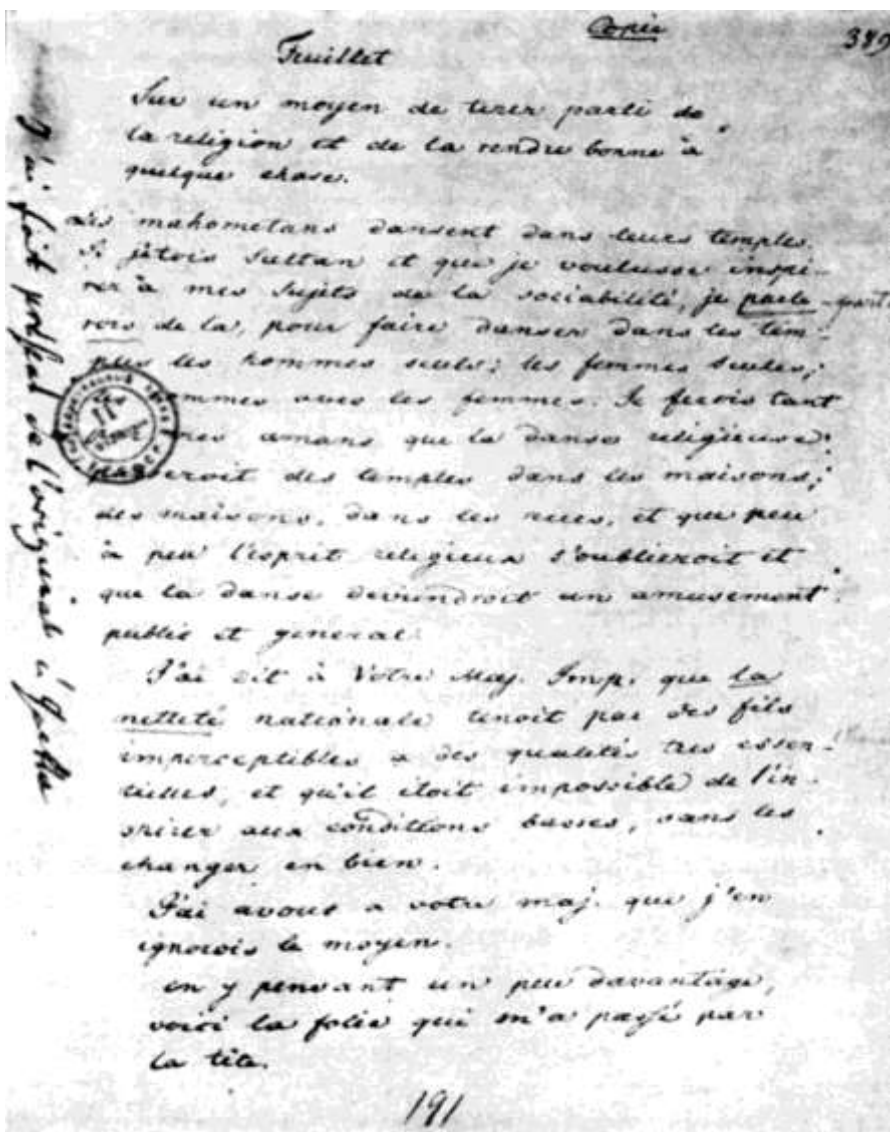 Copie
389
Feuillet
Sur un moyen de tirer parti de
la religion et de la rendre bonne à
quelque chose.
Les mahometans dansent dans leurs temples.
Si j'étois Sultan et que je voulusse inspi-
rer à mes sujets de la sociabilité, je parti-
rois de là, pour faire danser dans les tem-
ples les hommes seuls; les femmes seules;
hommes avec les femmes. Je ferois tant
que la danse religieuse
passeroit des temples dans les maisons;
des maisons, dans les rues, et que peu
à peu l'esprit religieux s'oublieroit et
que la danse deviendroit un amusement
public et general.
J'ai dit à Votre Maj. Imp. que la
netteté nationale tenoit par des fils
imperceptibles a des qualités tres essen-
tielles, et qu'il étoit impossible de l'in-
spirer aux conditions basses, sans les
changer en bien.
J'ai avoué a votre maj. que j'en
ignorois le moyen.
en y pensant un peu davantage,
voici la folie qui m'a passé par
la tête.
191
J'ai fait présent de l'original à Goethe